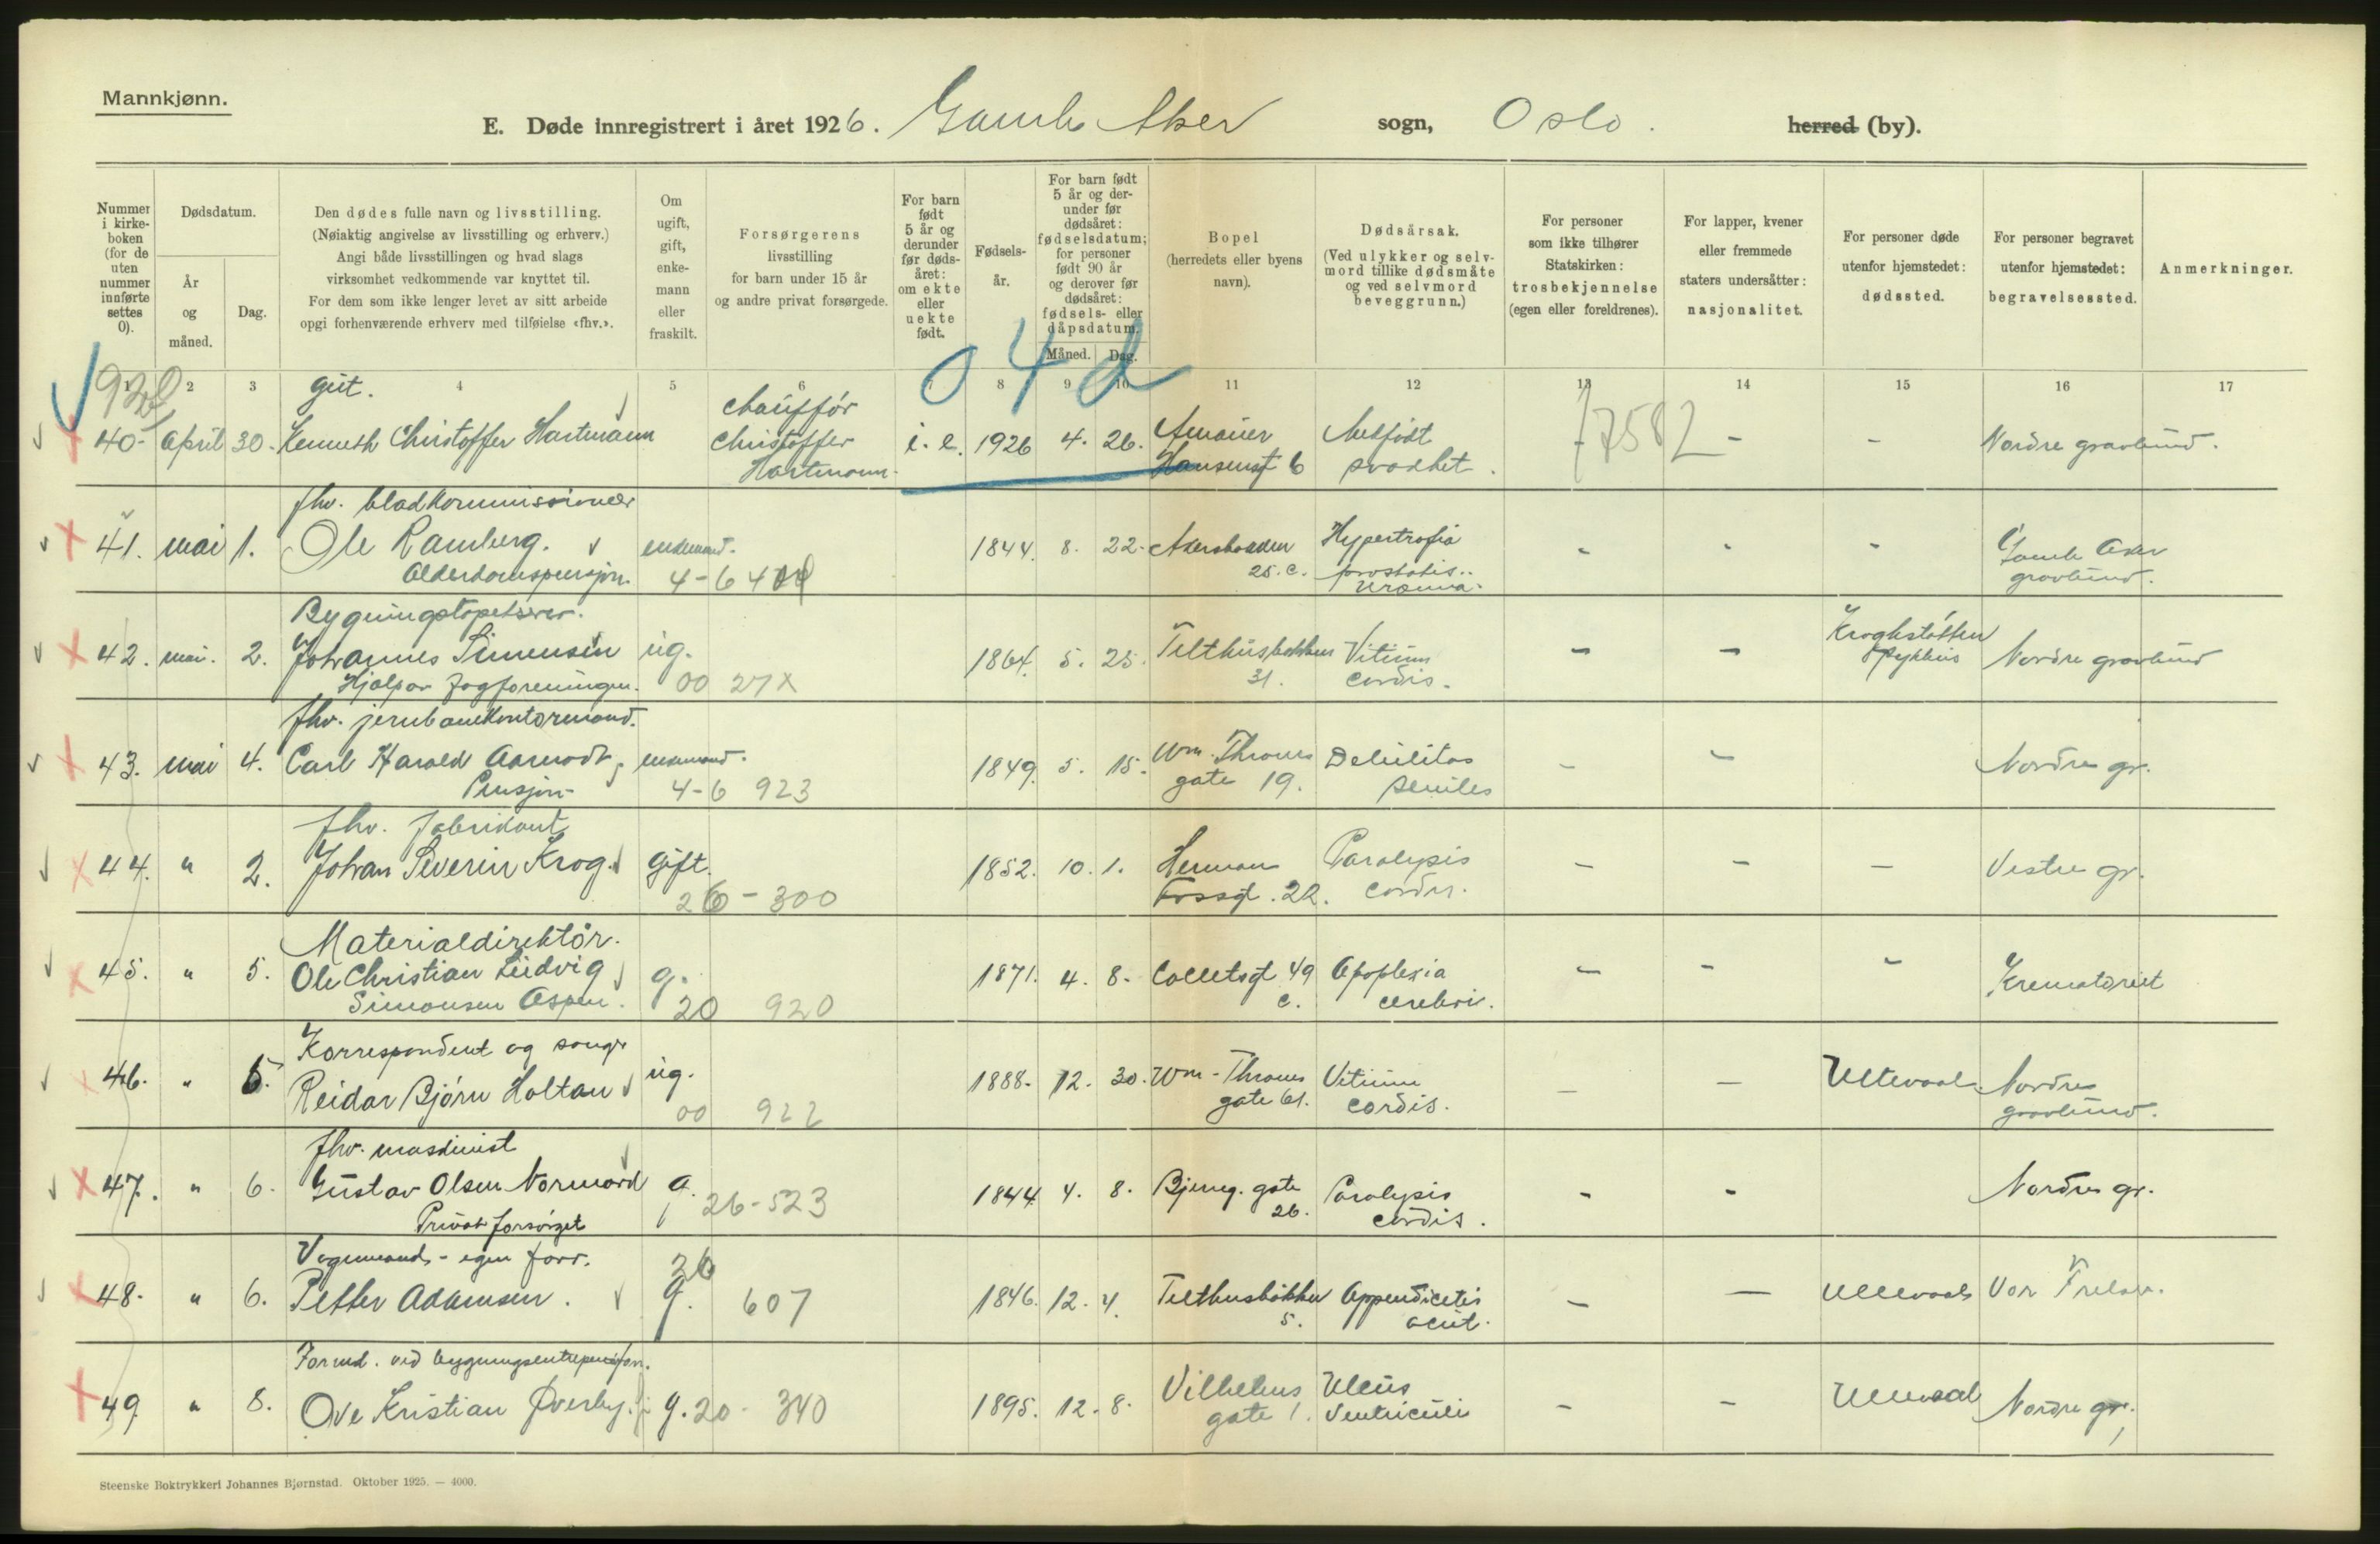 Mannkjønn.
E. Døde innregistrert i året 1926. Gamle Aker sogn, Oslo. herred (by).
Nummer i kirkeboken (for de uten nummer innførte settes 0).
Dødsdatum.
År og måned.
Dag.
Den dødes fulle navn og livsstilling.
(Nøiaktig angivelse av livsstilling og erhverv.)
Angi både livsstillingen og hvad slags
virksomhet vedkommende var knyttet til.
For dem som ikke lenger levet av sitt arbeide
opgi forhenværende erhverv med tilføielse «fhv.».
Om ugift, gift, enkemann eller fraskilt.
Forsørgerens
livsstilling
for barn under 15 år
og andre privat forsørgede.
For barn født 5 år og derunder før dødsåret: om ekte eller uekte født.
Fødselsår.
For barn født 5 år og derunder før dødsåret: fødselsdatum; for personer født 90 år og derover før dødsåret: fødsels- eller dåpsdatum.
Måned. Dag.
Bopel
(herredets eller byens
navn).
Dødsårsak.
(Ved ulykker og selvmord tillike dødsmåte og ved selvmord beveggrunn.)
For personer
som ikke tilhører
Statskirken:
trosbekjennelse
(egen eller foreldrenes).
For lapper, kvener
eller fremmede
staters undersåtter:
nasjonalitet.
For personer døde
utenfor hjemstedet:
dødssted.
For personer begravet
utenfor hjemstedet:
begravelsessted.
Anmerkninger.
1 2 3 4 5 6 7 8 9 10 11 12 13 14 15 16 17
920 04d
gut. chauffør
40- April 30. Kenneth Christoffer Hartmann Christoffer Hartmann. i. e. 1926 4. 26. Amauer Hansensgt 6 Medfødt svakhet. 7582 - - Nordre gravlund.
fhv. bladkommissionær
41. mai 1. Ole Ramberg. enkemand. 1844. 8. 22. Akersbakken 25. c. Hypertrofia prostatis. Uræmia. - - - Gamle Aker gravlund.
Alderdomspensjon. 4-6 4
Bygningstapetserer.
42. mai. 2. Johannes Simensen ug. 1864. 5. 25. Telthusbakken 31. Vitium cordis. - - Kroghstøtten sykehus Nordre gravlund
Hjelp av fagforeningen. 00 27X
fhv. jernbanekontormand.
43. mai 4. Carl Harald Aamodt, enkemand. 1849. 5. 15. Wm. Thranes gate 19. Debilitas senilis - - Nordre gr.
Pensjon- 4-6 923
fhv. fabrikant
44. " 2. Johan Severin Krog. gift. 1852. 10. 1. Herman Fossgt. 22. Paralysis cordis. - - - Vestre gr.
26-300
Materialdirektør.
45. " 5. Ole Christian Ludvig Simonsen Aspen. g. 1871. 4. 8. Colletsgt 49 c. Apoplexia cerebri. - - - Krematoriet
20 920
Korrespondent og sanger
46. " 5. Reidar Bjørn Holtan ug. 1888. 12. 30. Wm. Thranes gate 61. Vitium cordis. - - Ullevaal Nordre gravlund.
00 922
fhv. maskinist
47. " 6. Gustav Olsen Normand g. 1844 4. 8. Bjerreg. gate 26. Paralysis cordis. - - Nordre gr.
Privat forsørget 26-523
Vognmand - egen forr. 26
48. " 6. Petter Adamsen. g. 607 1846. 12. 4. Telthusbakken 5. Appendicitis acut. - - Ullevaal Vor Frelser.
Formd. ved bygningsentreprenørforr.
49 " 8. Ove Kristian Øverby. g. 20- 340 1895. 12. 8. Vilhelms gate 1. Ulcus Ventriculi - - Ullevaal Nordre gr.
Steenske Boktrykkeri Johannes Bjørnstad. Oktober 1925. — 4000.